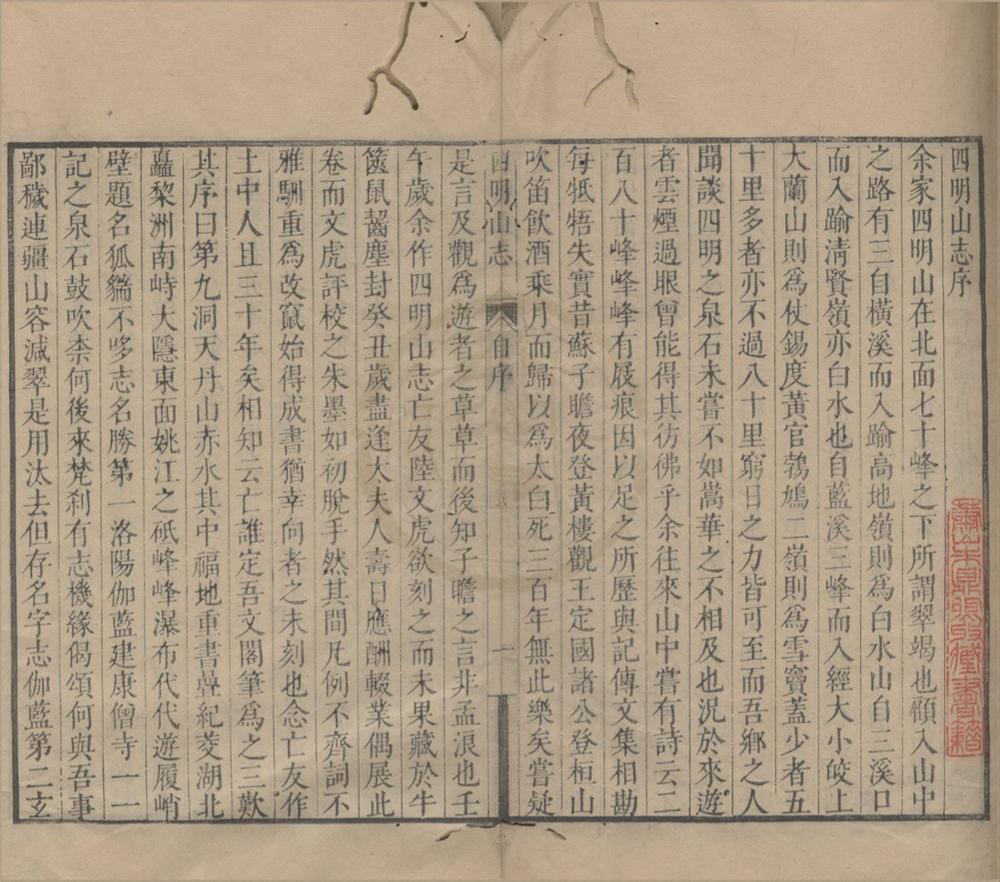 四明山志序
余家四明山在北面七十峰之下所謂翠竭也顧入山中
之路有三自橫溪而入踰高地嶺則爲白水山自三溪口
而入踰淸賢嶺亦白水也自藍溪三峰而入經大小皎上
大蘭山則爲仗錫度黃官鵓鳩二嶺則爲雪竇蓋少者五
十里多者亦不過八十里窮日之力皆可至而吾鄉之人
聞談四明之泉石未嘗不如嵩華之不相及也況於來遊
者雲煙過眼曾能得其彷彿乎余往來山中嘗有詩云二
百八十峰峰峰有屐痕因以足之所歷與記傳文集相勘
每牴牾失實昔蘇子瞻夜登黃樓觀王定國諸公登桓山
吹笛飲酒乘月而歸以爲太白死三百年無此樂矣嘗疑
四明山志 自序 一
是言及觀爲遊者之草草而後知子瞻之言非孟浪也壬
午歲余作四明山志亡友陸文虎欲刻之而未果藏於牛
篋鼠齧塵封癸丑歲盡逢大夫人壽日應酬輟業偶展此
卷而文虎評校之朱墨如初脫手然其間凡例不齊詞不
雅馴重爲改竄始得成書猶幸向者之未刻也念亡友作
土中人且三十年矣相知云亡誰定吾文閣筆爲之三歎
其序曰第九洞天丹山赤水其中福地重書疊紀菱湖北
矗棃洲南峙大隱東面姚江之砥峰峰瀑布代代遊履峭
壁題名狐貒不哆志名勝第一洛陽伽藍建康僧寺一一
記之泉石鼓吹柰何後來梵刹有志機緣偈頌何與吾事
鄙穢連疆山容減翠是用汰去但存名字志伽藍第二玄